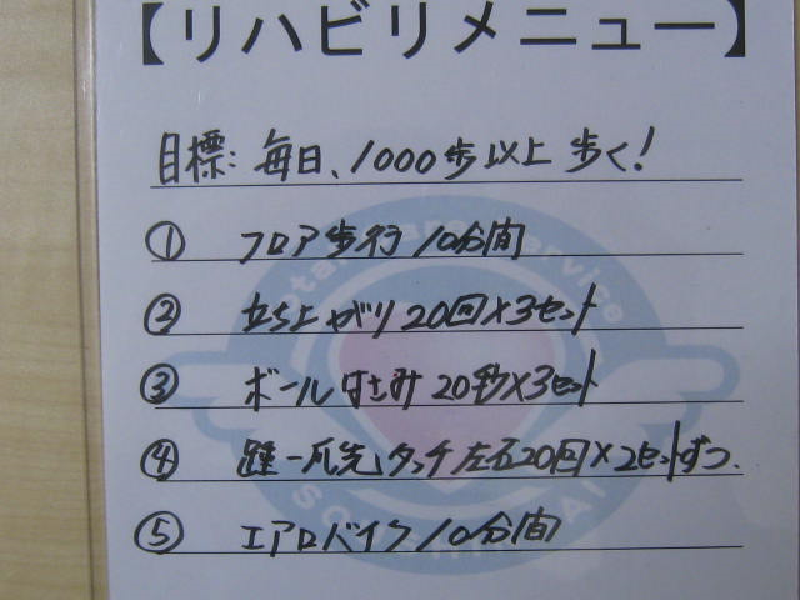 【リハビリメニュー】
目標: 毎日、1000歩以上 歩く!
① フロア歩行 10分間
② 立ち上がり 20回×3セット
③ ボールはさみ 20秒×3セット
④ 踵-爪先タッチ 左右20回×2セットずつ.
⑤ エアロバイク 10分間